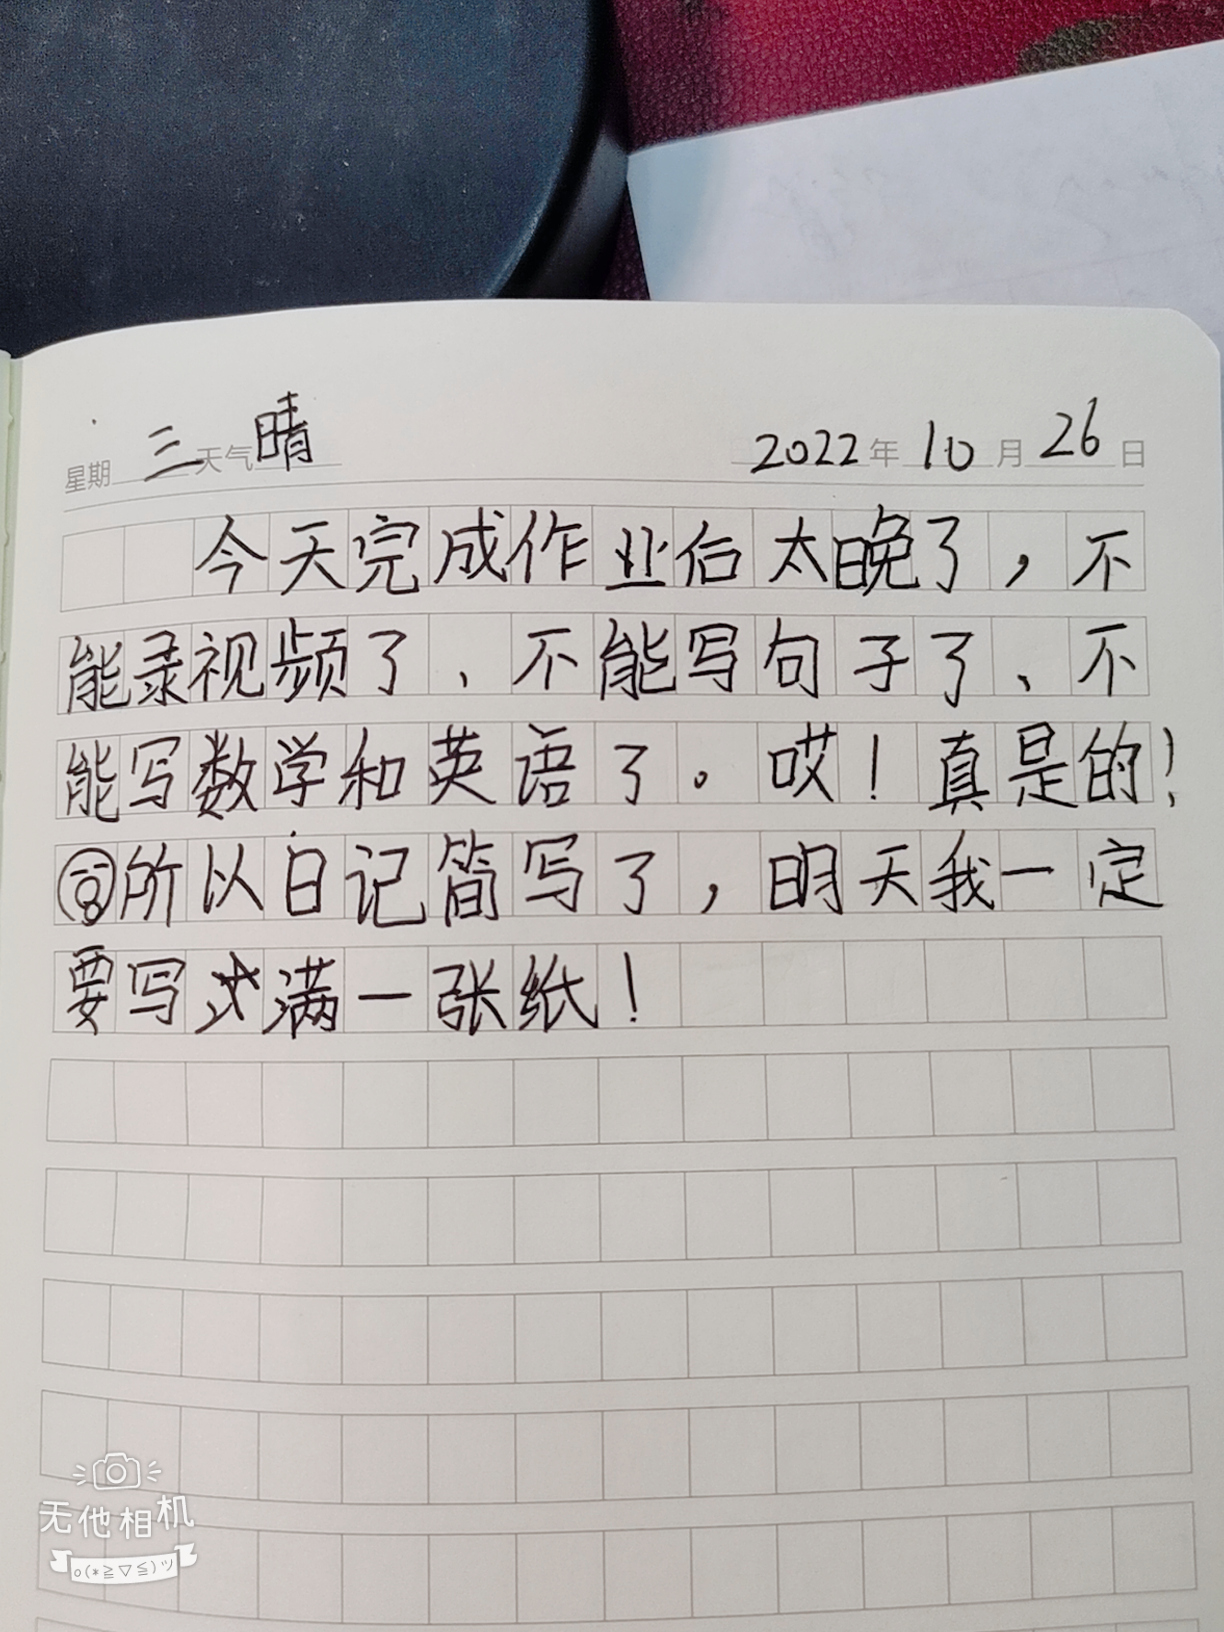 星期 三 天气 晴 2022 年 10 月 26 日
今天完成作业后太晚了，不
能录视频了、不能写句子了、不
能写数学和英语了。哎！真是的！
所以日记简写了，明天我一定
要写满一张纸！
无他相机
o(*≧▽≦)ツ